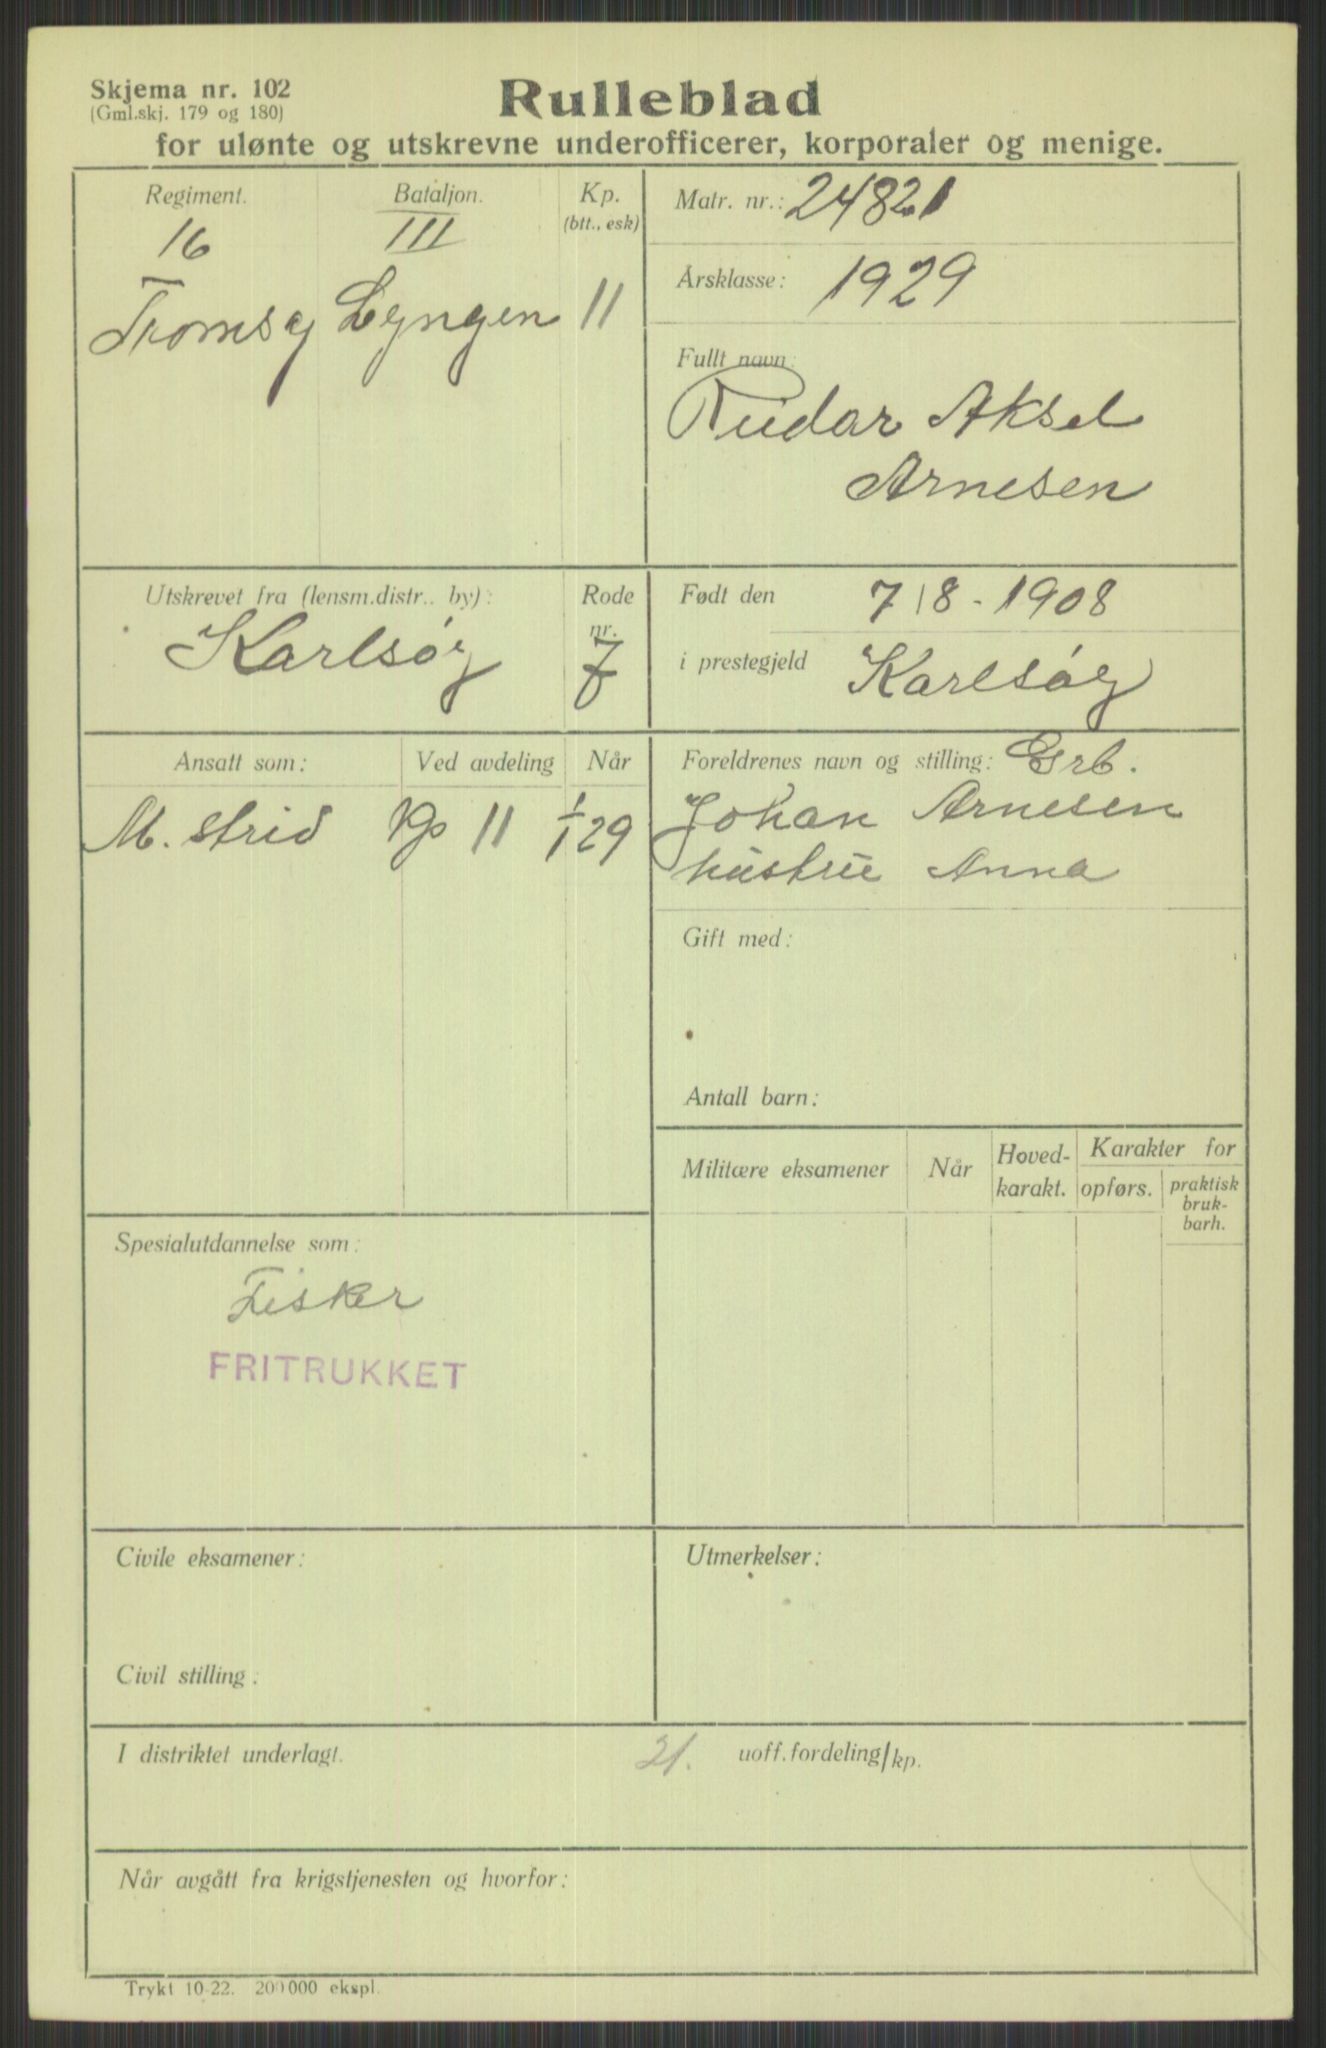 Skjema nr. 102
(Gml.skj. 179 og 180)
Rulleblad
for ulønte og utskrevne underofficerer, korporaler og menige.
Regiment.
16
Tromsø
Bataljon.
III
Lyngen
Kp.
(btt., esk)
11
Matr. nr.: 24821
Årsklasse: 1929
Fullt navn:
Rudar Aksel
Arnesen
Utskrevet fra (lensm.distr.. by):
Karlsøy
Rode
nr.
7
Født den 7/8-1908
i prestegjeld Karlsøy
Ansatt som: Ved avdeling Når
M. strid Kp 11 1/1 29
Foreldrenes navn og stilling: Grb.
Johan Arnesen
hustru Anna
Gift med:
Antall barn:
Militære eksamener
Når
Hoved-
karakt.
Karakter for
opførs.
praktisk
bruk-
barh.
Spesialutdannelse som:
Fisker
FRITRUKKET
Civile eksamener:
Civil stilling:
Utmerkelser:
I distriktet underlagt. 21. uoff.fordeling/kp.
Når avgått fra krigstjenesten og hvorfor:
Trykt 10-22. 200000 ekspl.